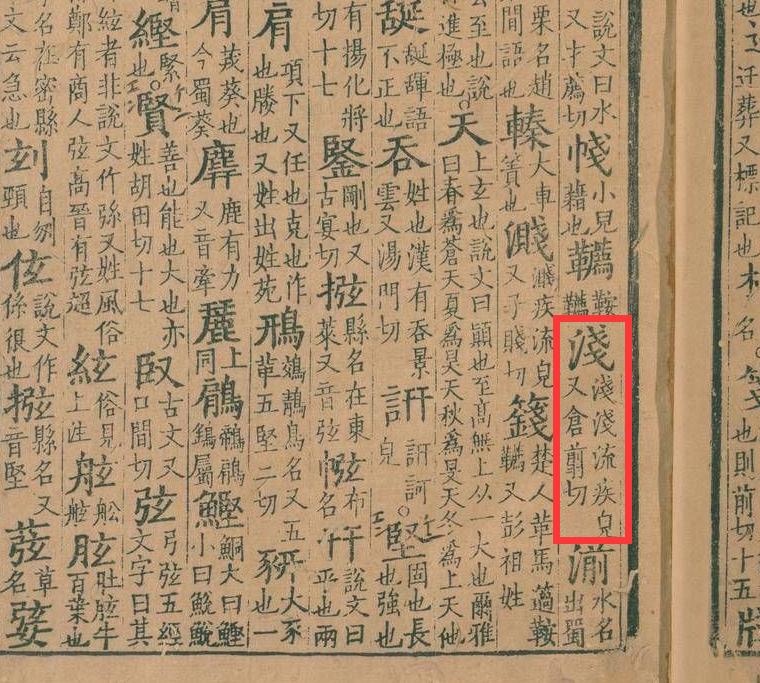 也則前切十五牋
說文曰水又才薦切帴小兒藉也韉鞍韉淺淺淺流疾皃又倉剪切湔水名出蜀
栗名趙間語也轃大車簀也濺濺疾流皃又子賤切籛楚人革馬薀鞍韉又彭祖姓
至也說進極也天上玄也說文曰顚也至高無上从一大也爾雅曰春為蒼天夏為昊天秋為旻天冬為上天他
語不正也吞姓也漢有吞景雲又湯門切訮訮訶皃堅固也長也強也
有揚化將切十七鋻剛也又古宴切㨉縣名在東萊又音弦㡉布名幵說文曰平也兩
肩項下又任也克也作也勝也又姓出姓苑鳽鵁鶄鳥名又五革五堅二切豜大豕也一
菺茙葵也今蜀葵麉鹿有力又音牽上同鵳鶙鵳鷂屬鰹鮦大曰鰹小曰鮵
緊也賢善也能也大也亦姓胡田切十七臤古文又口間切弦弓弦五經文字曰其
絃者非說文作又姓風俗鄭有商人弦高晉有弦超絃俗見上注舷舷船胘肚胘牛百葉也
名在密縣文云急也自刎頸也伭說文作係很也㨉縣名又音堅草名